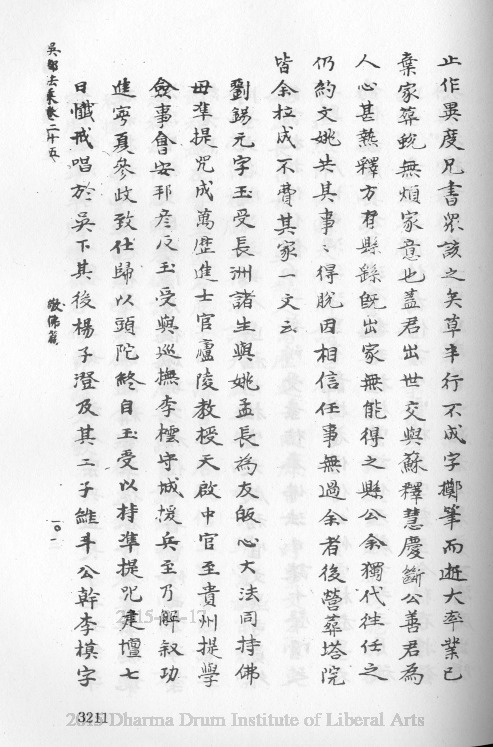 止作異度兄書眾該之矣草率行不成字擲筆而逝大率業已
棄家葬蛻無煩家意也蓋君出世交與蘇釋慧慶斷公善君為
人心甚熱釋方在縣繇既出家無能得之縣公余獨代往任之
仍約文姚共其事〻得脫因相信任事無過余者後營葬塔院
皆余拉成不費其家一文云
劉錫元字玉受長洲諸生與姚孟長為友皈心大法同持佛
母準提咒成萬歷進士官廬陵教授天啟中官至貴州提學
僉事會安邦彥反玉受與巡撫李橒守城援兵至乃解敘功
進寧夏參政致仕歸以頭陀終自玉受以持準提咒建壇七
日懺戒唱於吳下其後楊子澄及其二子維斗公幹李模字
吳都法乘卷二十五
敬佛篇
一〇一
3211
2015 Dharma Drum Institute of Liberal Arts